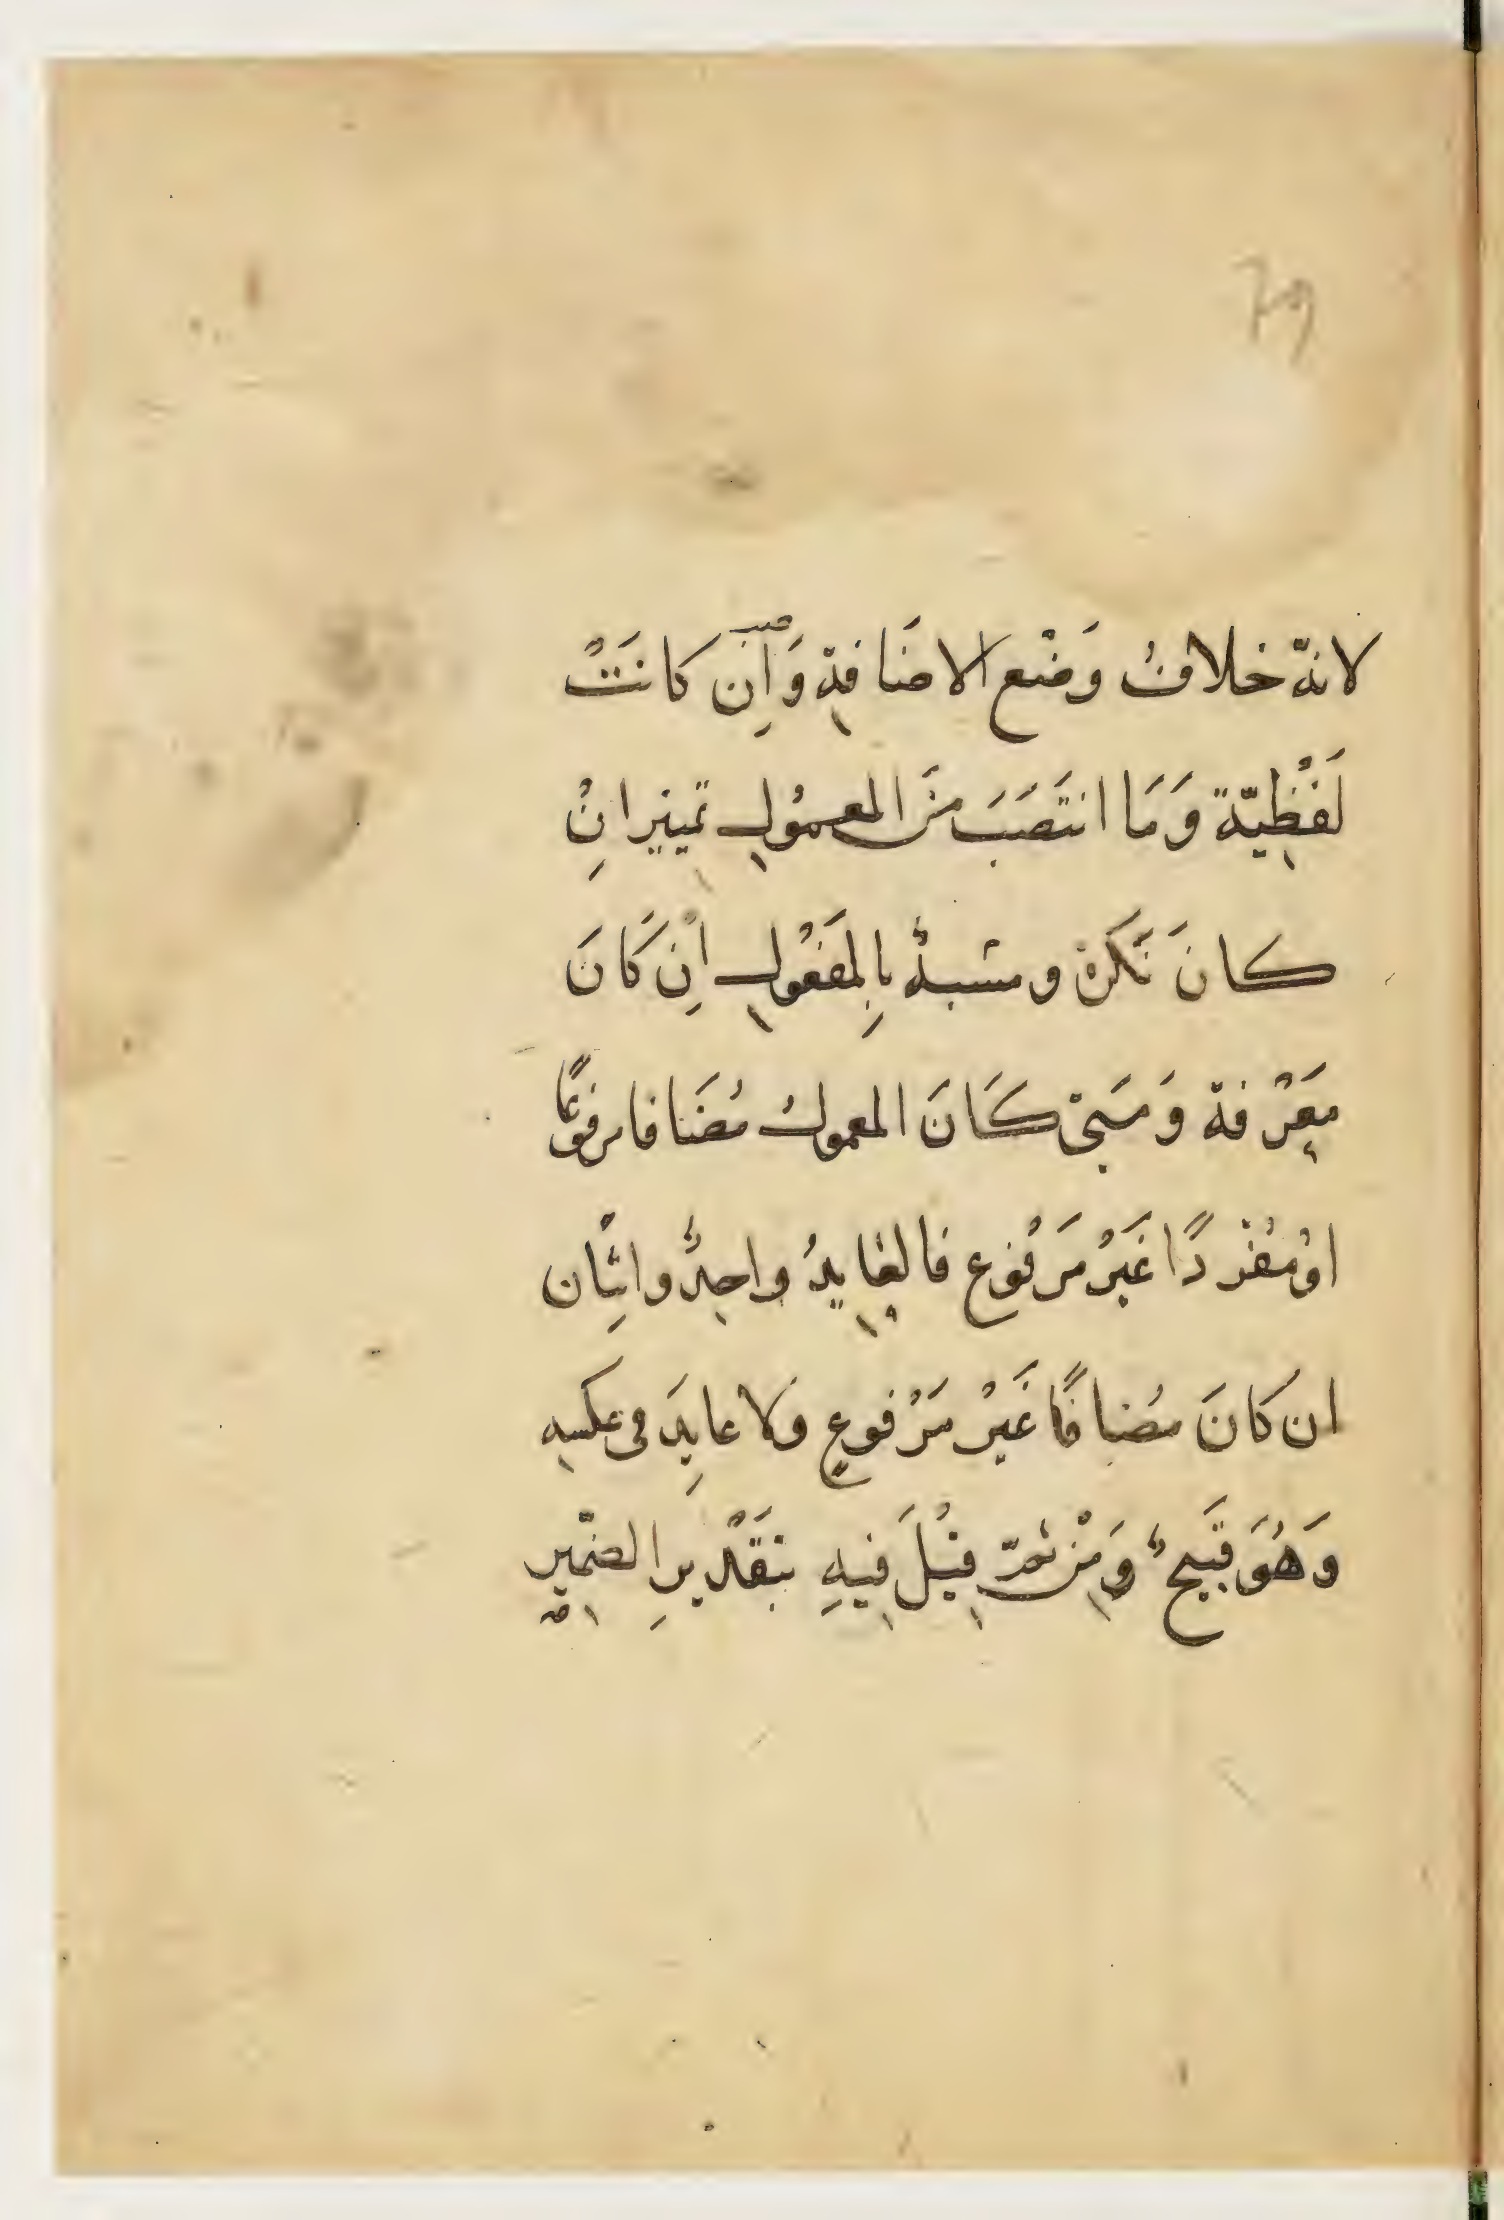 79
لانهّ خلافُ وَضْع الاضَافةِ وَاِن كانَتْ
لَفْظِيّة وَمَا انتَصَبَ منَ المعمُولِ تمييز اِنْ
كانَ نَكَرة ومشبهٌ بِالمَفْعُولِ اِنْ كَانَ
مَعِرْفة وَمَتىٰ كَانَ المعمولُ مُضَافا مرفوعًا
اوْ مُفْردًا غَيْرُ مَرْفوع فالعَايِدُ واحِدٌ واثِنَان
ان كانَ مُضافًا غَيْرُ مَرْفوعٍ ولا عايِدَ فى عكسِهِ
وَهُوَ قَبيحٌ وَمِنْ ثمّ قِيْلَ فِيهِ بتَقْديرِ الضمّيرِ